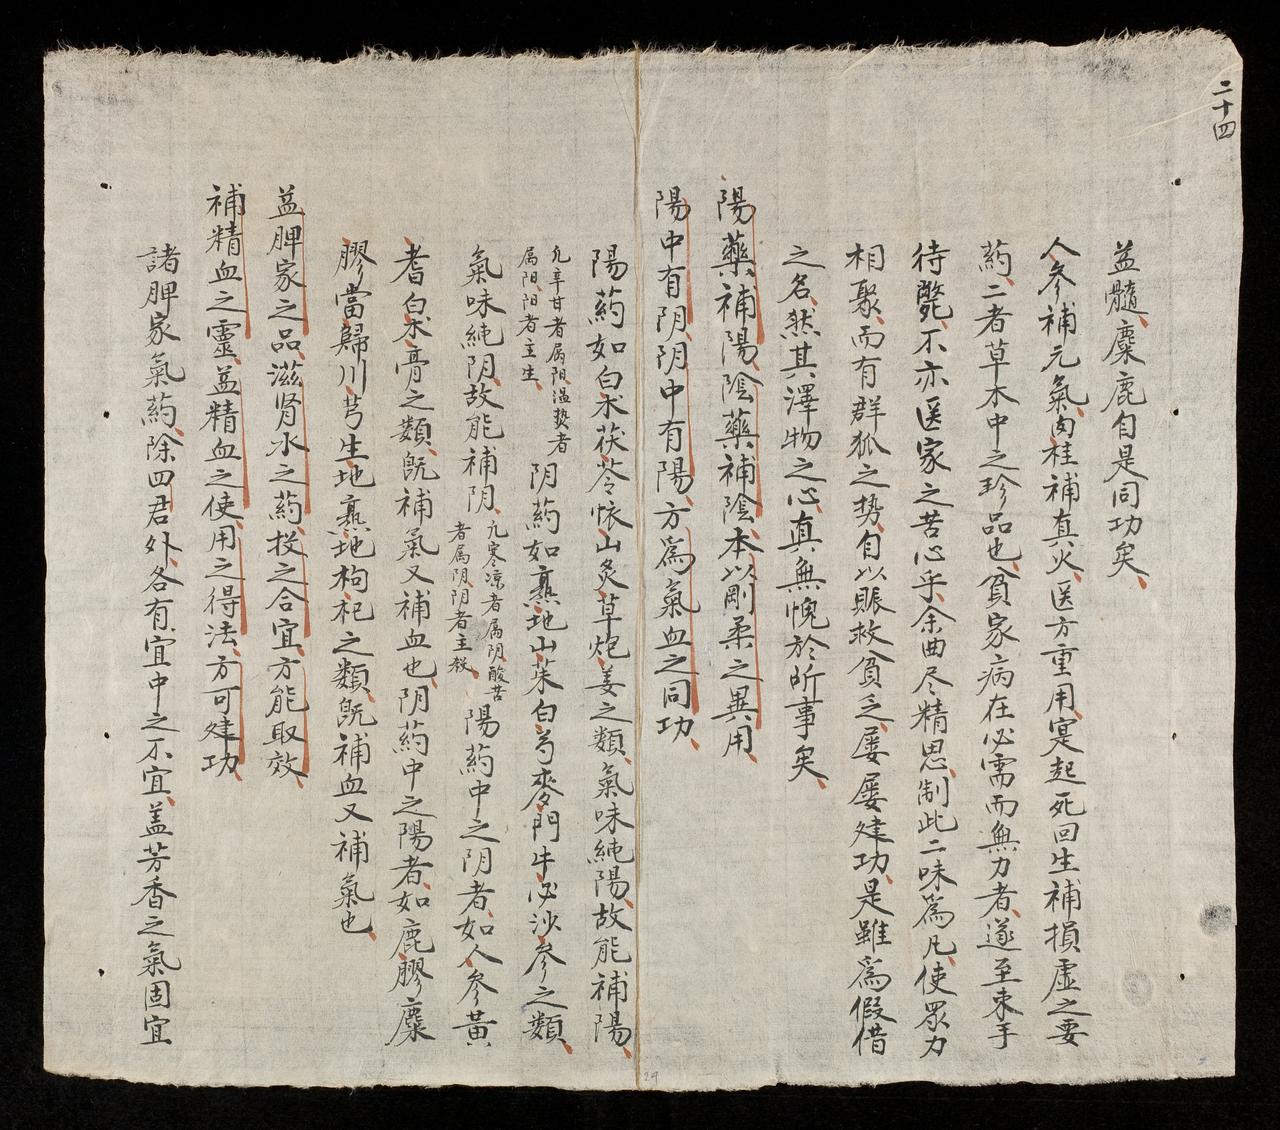 二十四
益髓麋鹿自是同功矣
人參補元氣肉桂補真火医方重用寔起死回生補損虛之要
葯二者草木中之珍品也貧家病在必需而無力者遂至束手
待斃不亦医家之苦心乎余曲尽精思制此二味為凡使眾力
相聚而有群狐之势自以賑救貧乏屡屡建功是雖為假借
之名然其澤物之心真無愧於所事矣
陽藥補陽陰藥補陰本以剛柔之異用
陽中有阴阴中有陽方為氣血之同功
陽葯如白术茯苓怀山炙草炮姜之類氣味純陽故能補陽
凢辛甘者属阳温热者
属阳阳者主生
阴葯如熟地山茱白芍麥門牛必沙參之類
氣味純阴故能補阴
凢寒凉者属阴酸苦
者属阴阴者主殺
陽葯中之阴者如人參黃
耆白术膏之類旣補氣又補血也阴葯中之陽者如鹿膠麋
膠當歸川芎生地熟地枸杞之類旣補血又補氣也
益脾家之品滋肾水之葯投之合宜方能取效
補精血之靈益精血之使用之得法方可建功
諸脾家氣葯除四君外各有宜中之不宜盖芳香之氣固宜
24